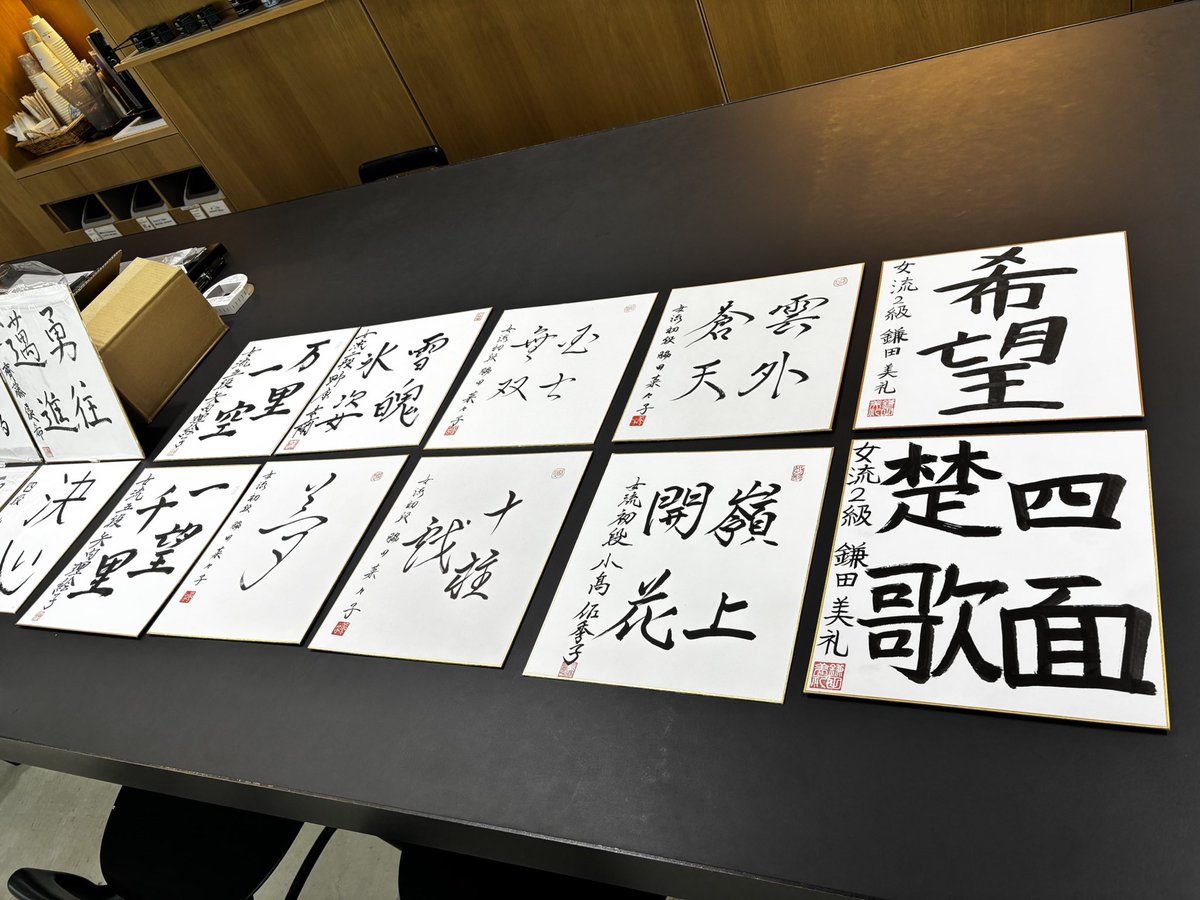 希望
女流2級 鎌田美礼
雲外
蒼天
女流初段 脇田菜々子
国士
無双
女流初段 脇田菜々子
雪魄
氷姿
万里
一空
女流五段 矢内理絵子
勇往
邁進
四面
楚歌
女流2級 鎌田美礼
嶺上
開花
女流初段 小高佐季子
十柱
戯
女流初段 脇田菜々子
夢
女流初段 脇田菜々子
一望
千里
女流五段 矢内理絵子
決心